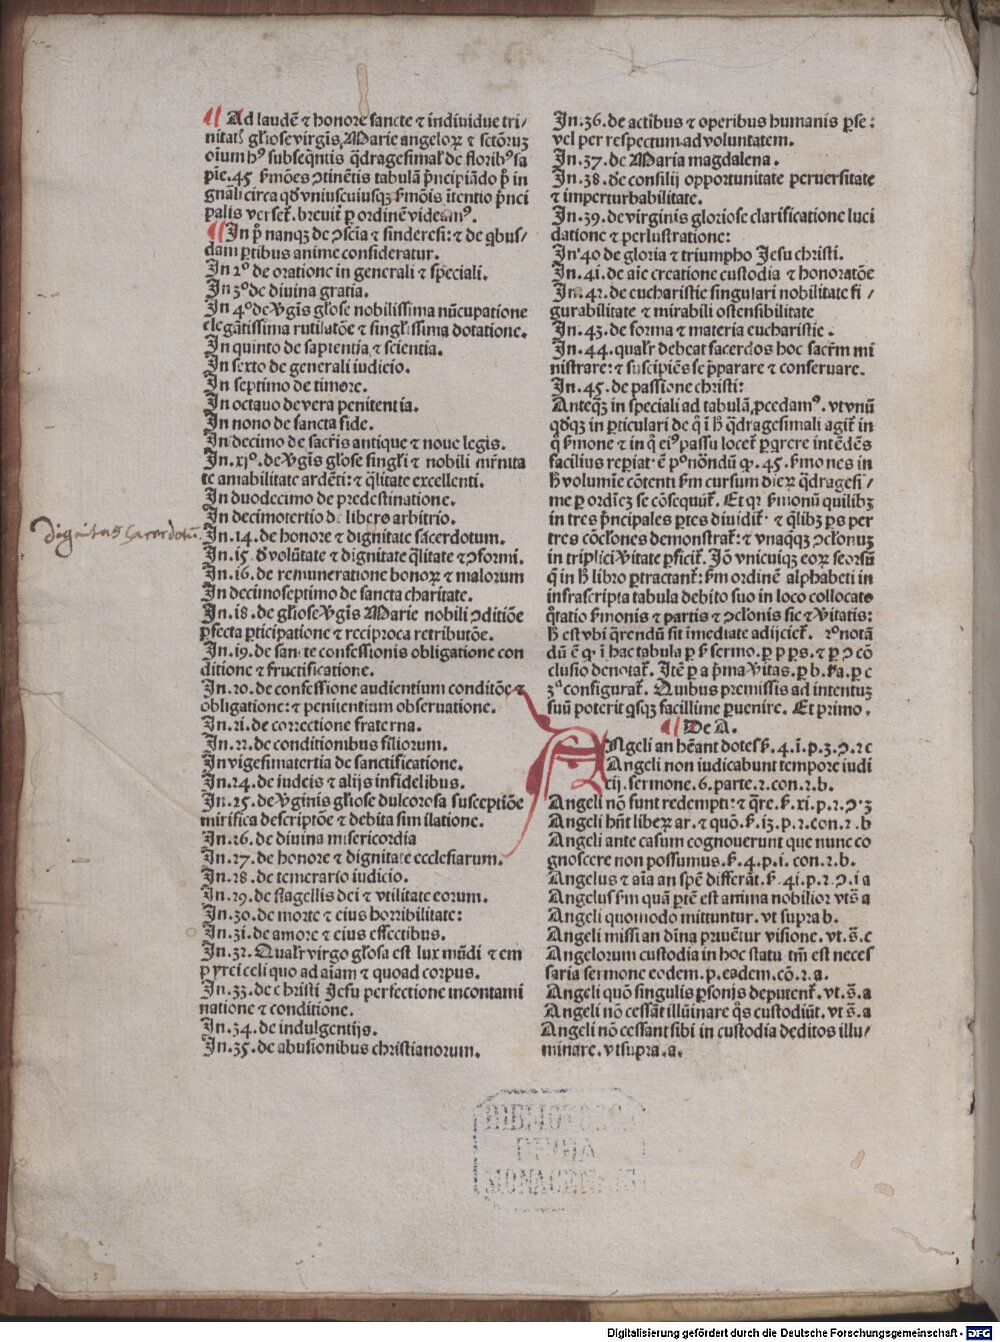 Ad laudē ⁊ honorē sancte ⁊ individue tri/
nitatꝭ gl̄iose virgīs Marie angeloꝝ ⁊ sctōruꝫ
oīum hꝰ subseq̄ntis q̄dragesimal̄ de floribꝰ sa
pīe.45 ẜmōes ꝯtinētis tabulā p̄ncipiādo p̄ in
gnāli circa qđ vniuscuiusqꝫ ẜmōis ītentio p̄nci
palis verseť. breuiť ꝑ ordinē videamꝰ.
In pͥ nanqꝫ de ꝯscīa ⁊ sinderesi: ⁊ de qͥbus/
dam ꝑtibus anime consideratur.
In 2º de oratione in generali ⁊ speciali.
In 3º de divina gratia.
In 4º de ꝟgīs gl̄ose nobilissima nūcupatione
elegātissima rutilatōe ⁊ singl̄issima dotatione.
In quinto de sapientia ⁊ scientia.
In sexto de generali iudicio.
In septimo de timore.
In octauo de vera penitentia.
In nono de sancta fide.
In decimo de sacr̄is antique ⁊ noue legis.
In.xjº. de ꝟgīs gl̄ose singl̄i ⁊ nobili mr̄nita
te amabilitate ardēti: ⁊ q̄litate excellenti.
In duodecimo de predestinatione.
In decimotertio de libero arbitrio.
dignitas sacerdotū
In.14. de honore ⁊ dignitate sacerdotum.
In.15 đ volūtate ⁊ dignitate q̄litate ⁊ ꝯformi.
In.16. de remuneratione bonoꝝ ⁊ malorum
In decimoseptimo de sancta charitate.
In.18. de gl̄iose ꝟgīs Marie nobili ꝯditiōe
ꝑfecta ꝑticipatione ⁊ reciproca retributōe.
In.19. de sancte confessionis obligatione con
ditione ⁊ fructificatione.
In.20. de confessione audientium conditōe ⁊
obligatione: ⁊ penitentium obseruatione.
In.21. de correctione fraterna.
In.22. de conditionibus filiorum.
In vigesimatertia de sanctificatione.
In.24. de iudeis ⁊ alijs infidelibus.
In.25. de ꝟginis gl̄iose dulcorosa susceptiōe
mirifica descriptōe ⁊ debita similatione.
In.26. de diuina misericordia
In.27. de honore ⁊ dignitate ecclesiarum.
In.28. de temerario iudicio.
In.29. de flagellis dei ⁊ vtilitate eorum.
In.30. de morte ⁊ eius horribilitate:
In.31. de amore ⁊ eius effectibus.
In.32. Qualr̄ virgo gl̄osa est lux mūdi ⁊ em
pyrei celi quo ad aīam ⁊ quoad corpus.
In.33. de christi Jesu perfectione incontami
natione ⁊ conditione.
In.34. de indulgentijs.
In.35. de abusionibus christianorum.
In.36. de actibus ⁊ operibus humanis ꝑ se:
vel per respectum ad voluntatem.
In.37. de Maria magdalena.
In.38. de consilij opportunitate peruersitate
⁊ imperturbabilitate.
In.39. de virginis gloriose clarificatione luci
datione ⁊ perlustratione:
In 40 de gloria ⁊ triumpho Jesu christi.
In.41. de aīe creatione custodia ⁊ honoratōe
In.42. de eucharistie singulari nobilitate fi/
gurabilitate ⁊ mirabili ostensibilitate
In.43. de forma ⁊ materia eucharistie.
In.44. qualr̄ debeat sacerdos hoc sacr̄m mi
nistrare: ⁊ suscipiēs se p̄parare ⁊ conseruare.
In.45. de passione christi:
Anteqꝫ in speciali ad tabulā ꝓcedamꝰ. vt vnū
qđqꝫ in ꝑticulari de qͦ ī ħ q̄dragesimali agiť in
qͦ ẜmone ⁊ in qͦ eiꝰ passu loceť ꝑqrere intēdēs
facilius reꝑiat ē pͦ notādū ꝙ.45. ẜmones in
ħ volumīe cōtenti ẜm cursum dieꝝ q̄dragesi/
me ꝑ ordiēꝫ se cōsequūť. Et qꝛ ẜmonū quilibꝫ
in tres p̄ncipales ꝑtes diuidiť ⁊ q̄libꝫ ꝑs per
tres cōclōnes demonstrať: ⁊ vnaq̄qꝫ ꝯclōnuꝫ
in triplici ꝟitate ꝑficiť. Jō vnicuiqꝫ eoꝝ seorsū
q̄ in ħ libro ꝑtractanť: ẜm ordinē alphabeti in
infrascripta tabula debito suo in loco collocato
q̄tatio ẜmonis ⁊ partis ⁊ ꝯclōnis sic ⁊ ꝟitatis:
ħ est vbi q̄rendū sit īmediate adijcieť. 2º notā
dū ē ꝙ ī hac tabula ꝑ ẜ sermo. ꝑ p ꝑs. ⁊ ꝑ ꝯ cō
clusio denotať. Itē ꝑ a p̄ma ꝟitas. ꝑ b. 2ª. ꝑ c
3ª configurať. Quibus premissis ad intentuꝫ
suū poterit qͥsqꝫ facillime ꝑuenire. Et primo.
De A.
Angeli an hēant dotes ẜ.4.1.p.3.ꝯ.2 c
Angeli non iudicabunt tempore iudi
cij. sermone.6. parte.2.con.2.b.
Angeli nō sunt redempti: ⁊ q̄re.ẜ.xi.p.2.ꝯ.3
Angeli hn̄t liberꝝ ar. ⁊ quō.ẜ.13.p.2.con.2.b
Angeli ante casum cognouerunt que nunc co
gnoscere non possumus.ẜ.4.p.1.con.2.b.
Angelus ⁊ aīa an spē differāt.ẜ.41.p.2.ꝯ.1 a
Angelus ẜm quā ꝑtē est anima nobilior vt s̄ a
Angeli quomodo mittuntur. vt supra b.
Angeli missi an dīna priuētur visione. vt. s̄. c
Angelorum custodia in hoc statu tm̄ est neces
saria sermone eodem. p. eadem. cō.2.a.
Angeli quō singulis ꝑsonis deputenť. vt. s̄. a
Angeli nō cessāt illūinare q̄s custodiūt. vt s̄. a
Angeli nō cessant sibi in custodia deditos illu/
minare. vt supra. a.
BIBLIOTHECA
REGIA
MONACENSIS
Digitalisierung gefördert durch die Deutsche Forschungsgemeinschaft - DFG